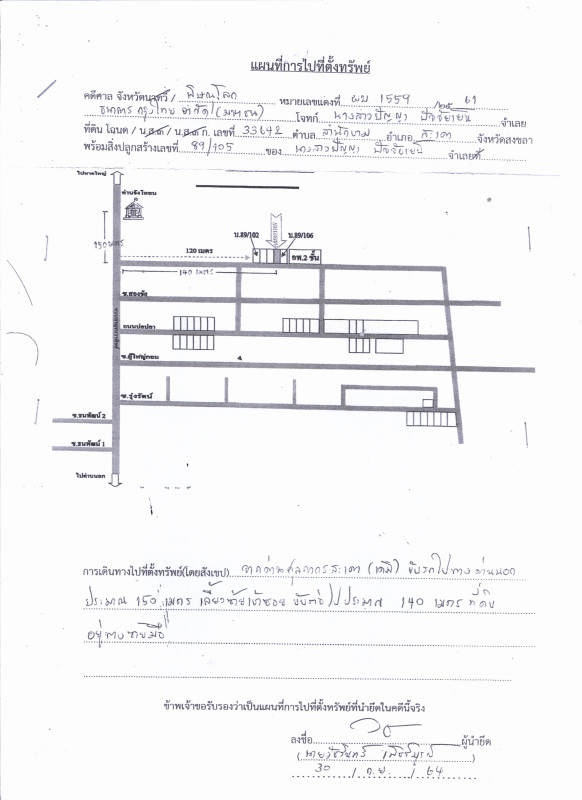 แผนที่การไปที่ตั้งทรัพย์
คดีศาล จังหวัดนาทวี / พิษณุโลก หมายเลขแดงที่ ผบ 1559 /25 61
ธนาคาร กรุงไทย จำกัด (มหาชน) โจทก์ นางสาวปัญญา ปัจจัยเย็น จำเลย
ที่ดิน โฉนด / น.ส.๓ / น.ส.๓ ก. เลขที่ 33642 ตำบล สำนักขาม อำเภอ สะเดา จังหวัดสงขลา
พร้อมสิ่งปลูกสร้างเลขที่ 89/105 ของ นางสาวปัญญา ปัจจัยเย็น จำเลยที่
ไปหาดใหญ่
ด่านจังโหลน
150 เมตร
120 เมตร
บ.89/102
บ.89/106
อพ.2 ชั้น
140 เมตร
ซ.สองชัย
ถนนปลอปลา
ซ.ผู้ใหญ่กอบ
ซ.รุ่งรัตน์
ซ.ธนพัฒน์ 2
ซ.ธนพัฒน์ 1
ไปด่านนอก
การเดินทางไปที่ตั้งทรัพย์(โดยสังเขป) จากด่านศุลกากรสะเดา (เดิม) ขับรถไปทางด่านนอก
ประมาณ 150 เมตร เลี้ยวซ้ายเข้าซอย ขับต่อไปประมาณ 140 เมตร ที่ดิน
อยู่ทางซ้ายมือ
ข้าพเจ้าขอรับรองว่าเป็นแผนที่การไปที่ตั้งทรัพย์ที่นำยึดในคดีนี้จริง
ลงชื่อ ผู้นำยึด
30 / ก.ย. / 64